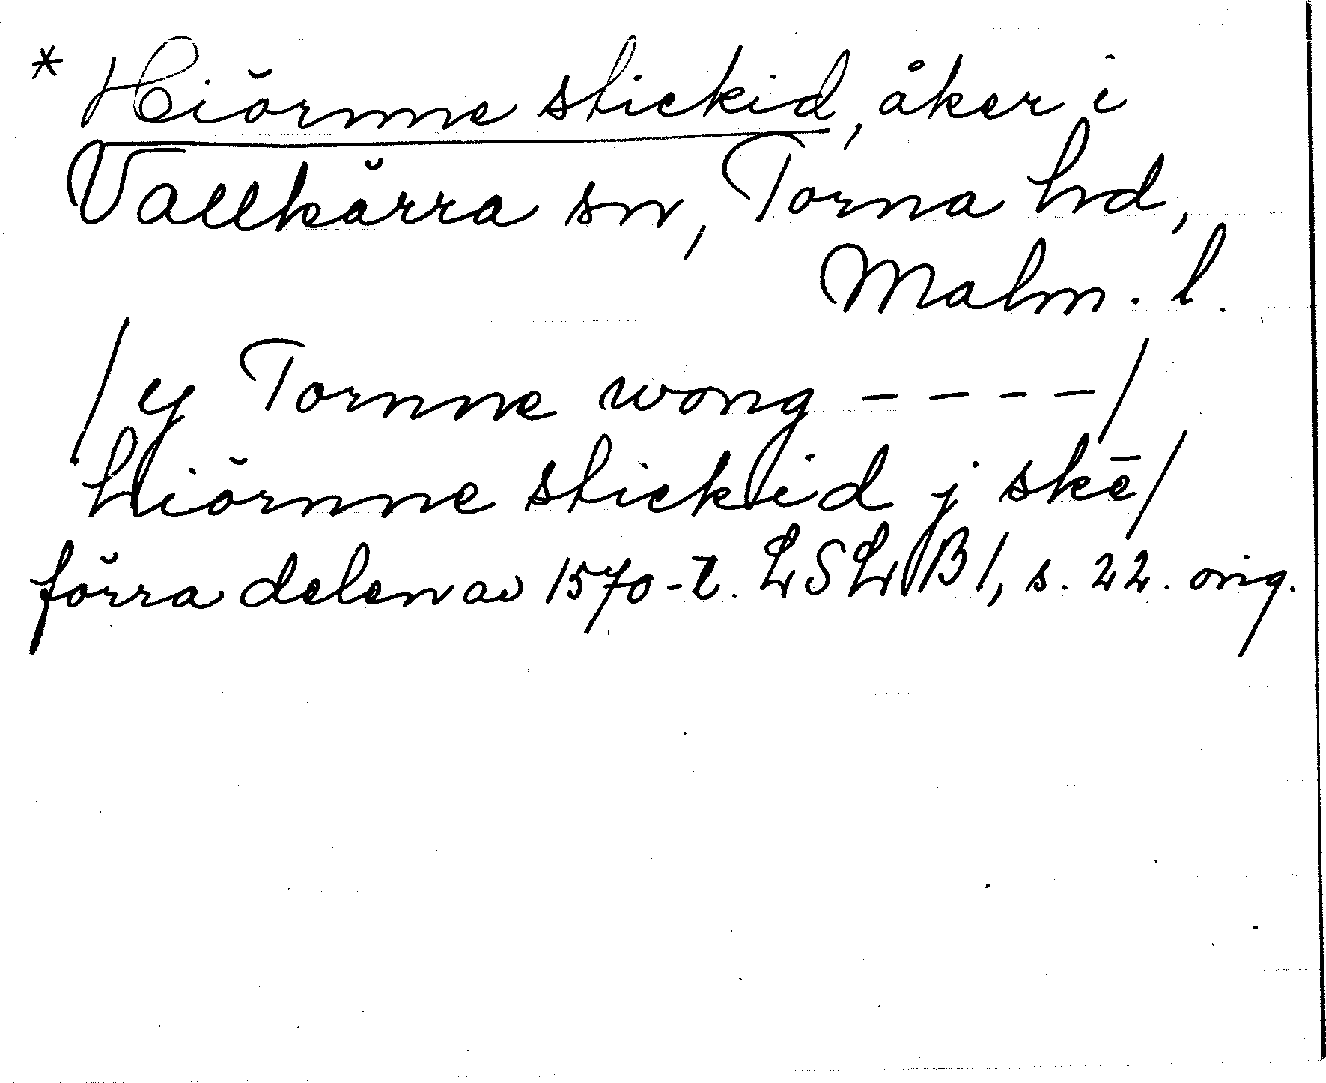 * Hiörnne stickid, åker i
Vallkärra sn, Torna hd,
Malm. l.
/y Tornne wong - - - -/
hiörnne stickid j skē/
förra delen av 1570-t. LSLJB 1, s. 22. orig.